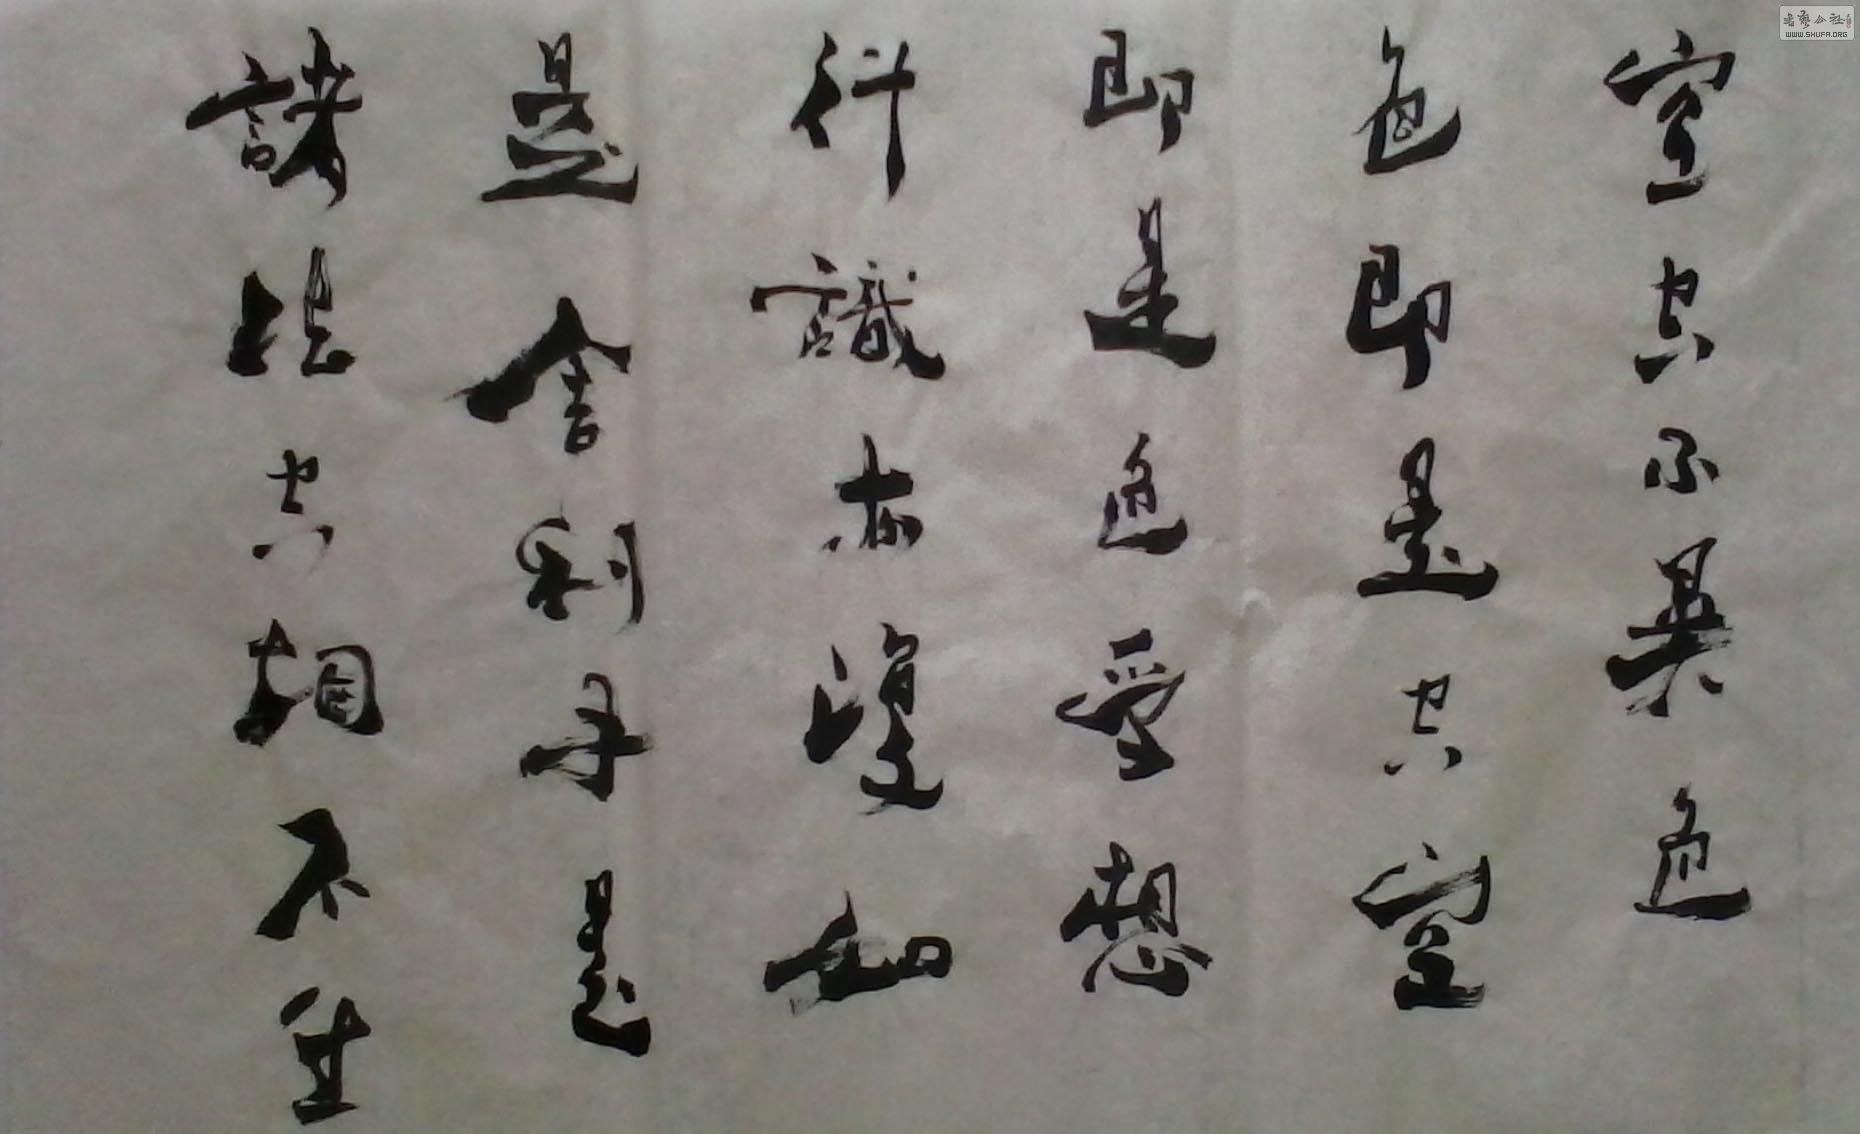 空空不異色
色即是空空
即是色受想
行識亦復如
是舍利子是
諸法空相不生
書藝公社
WWW.SHUFA.ORG